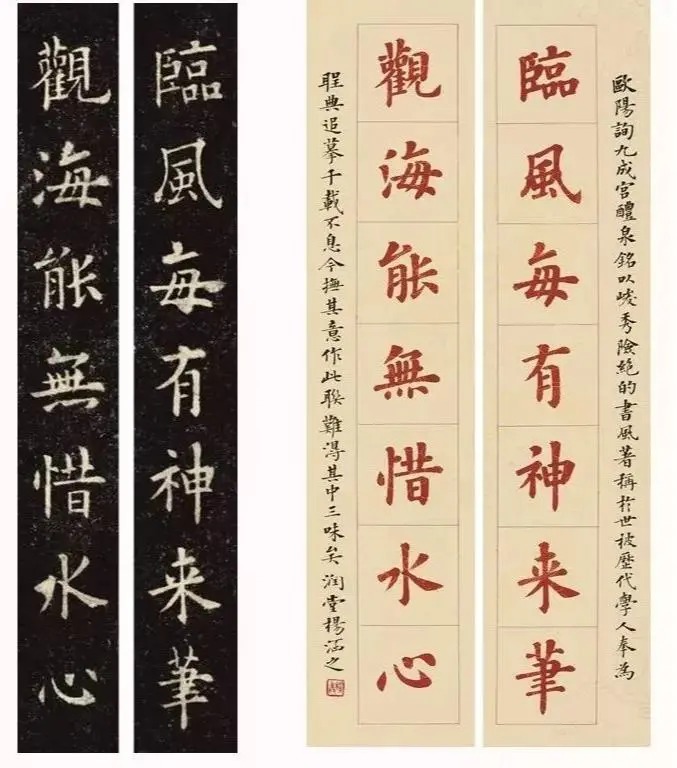 臨風每有神来筆
觀海能無惜水心
歐陽詢九成宮醴泉銘以峻秀險絶的書風著稱於世被歷代學人奉為
臨風每有神来筆
觀海能無惜水心
聖典追摹千載不息今撫其意作此聯難得其中三味矣潤堂楊涵之